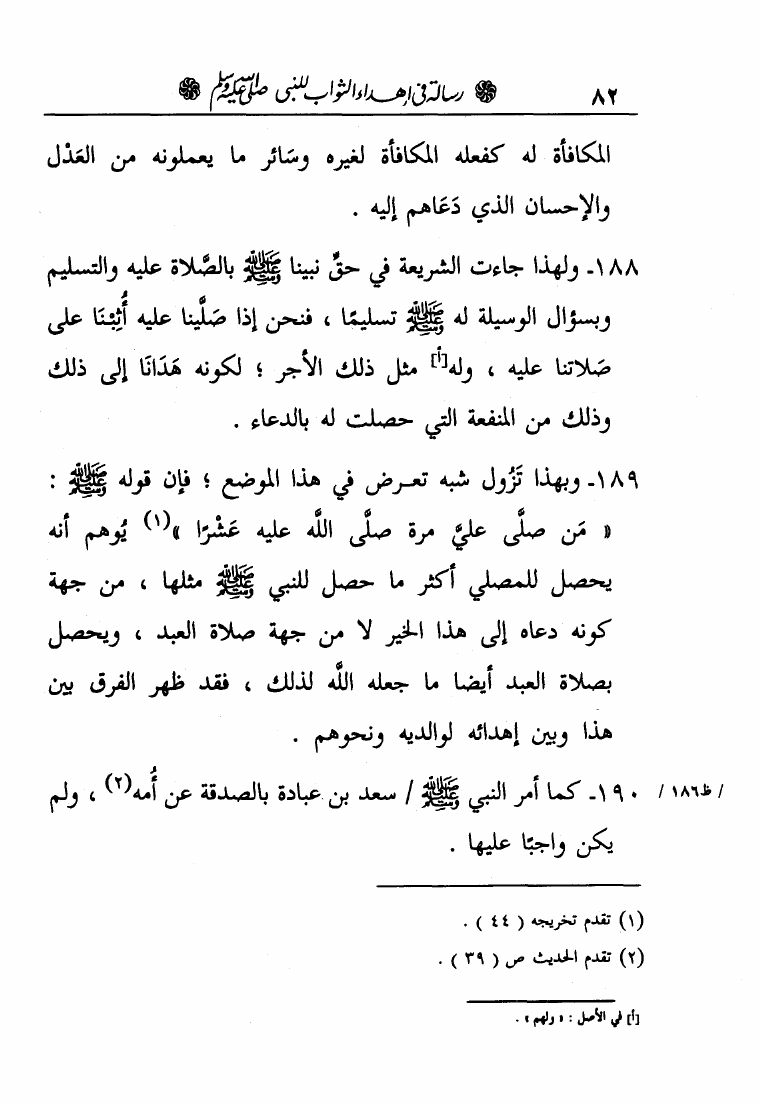 ٨٢ رسالة في إهداء الثواب للنبي صلى الله عليه وسلم
المكافأة له كفعله المكافأة لغيره وسَائر ما يعملونه من العَدْل
والإحسان الذي دَعَاهم إليه .
١٨٨ـ ولهذا جاءت الشريعة في حقِّ نبينا ﷺ بالصَّلاة عليه والتسليم
وبسؤال الوسيلة له ﷺ تسليمًا ، فنحن إذا صَلَّينا عليه أُثِبْنَا على
صَلاتنا عليه ، وله[أ] مثل ذلك الأجر ؛ لكونه هَدَانَا إلى ذلك
وذلك من المنفعة التي حصلت له بالدعاء .
١٨٩ـ وبهذا تَزُول شبه تعـرض في هذا الموضع ؛ فإن قوله ﷺ :
« مَن صلَّى عليَّ مرة صلَّى اللَّه عليه عَشْرًا »(١) يُوهم أنه
يحصل للمصلي أكثر ما حصل للنبي ﷺ مثلها ، من جهة
كونه دعاه إلى هذا الخير لا من جهة صلاة العبد ، ويحصل
بصلاة العبد أيضا ما جعله اللَّه لذلك ، فقد ظهر الفرق بين
هذا وبين إهدائه لوالديه ونحوهم .
/ ظ١٨٦ / ١٩٠ـ كما أمر النبي ﷺ / سعد بن عبادة بالصدقة عن أُمه(٢) ، ولم
يكن واجبًا عليها .
(١) تقدم تخريجه ( ٤٤ ) .
(٢) تقدم الحديث ص ( ٣٩ ) .
[أ] في الأصل : « ولهم » .